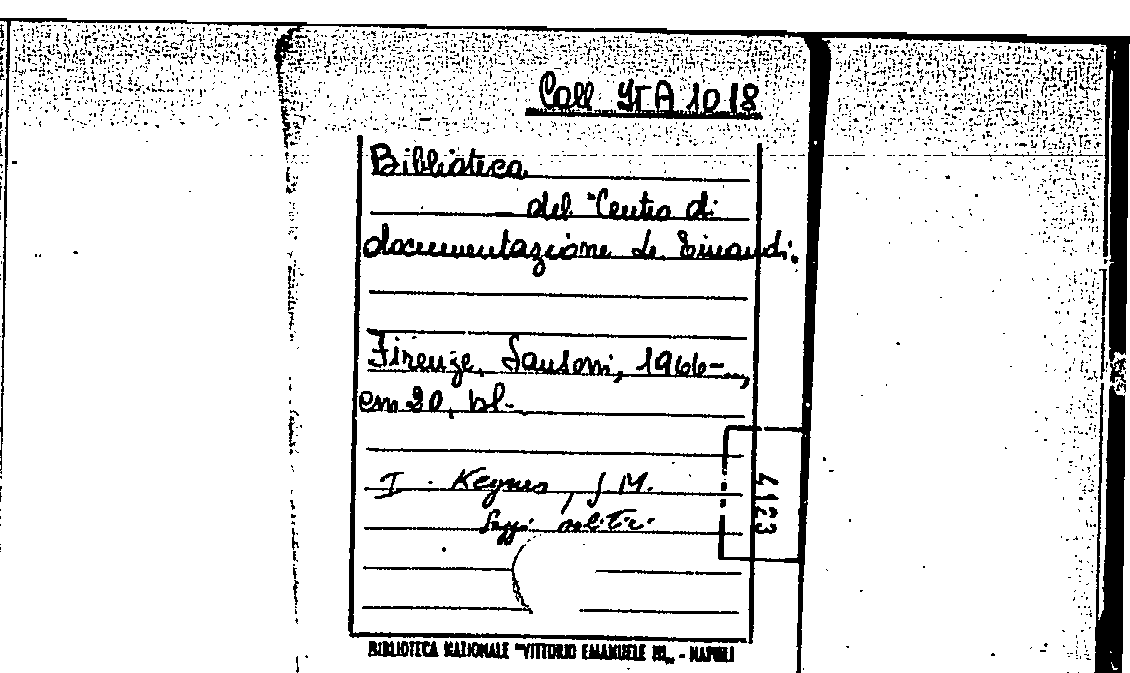 Coll. ITA 1018
Biblioteca
del "Centro di
documentazione L. Einaudi.
Firenze, Sansoni, 1966-...,
cm 20, bl.
I. Keynes, J. M.
Saggi politici
4123
BIBLIOTECA NAZIONALE "VITTORIO EMANUELE III„ - NAPOLI